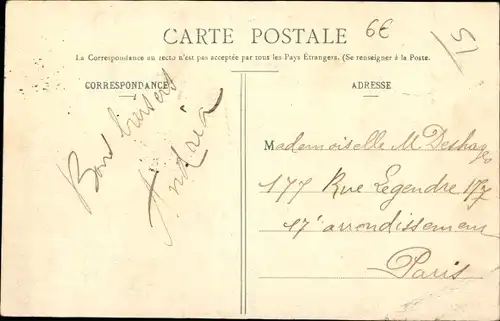 CARTE POSTALE
6€
51
La Correspondance au recto n'est pas acceptée par tous les Pays Étrangers. (Se renseigner à la Poste.
CORRESPONDANCE
ADRESSE
Bons baisers
Mademoiselle M Deshay
177 Rue Legendre 177
17e arrondissement
Paris